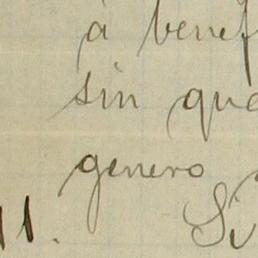 a benef
sin que
genero
11. Si